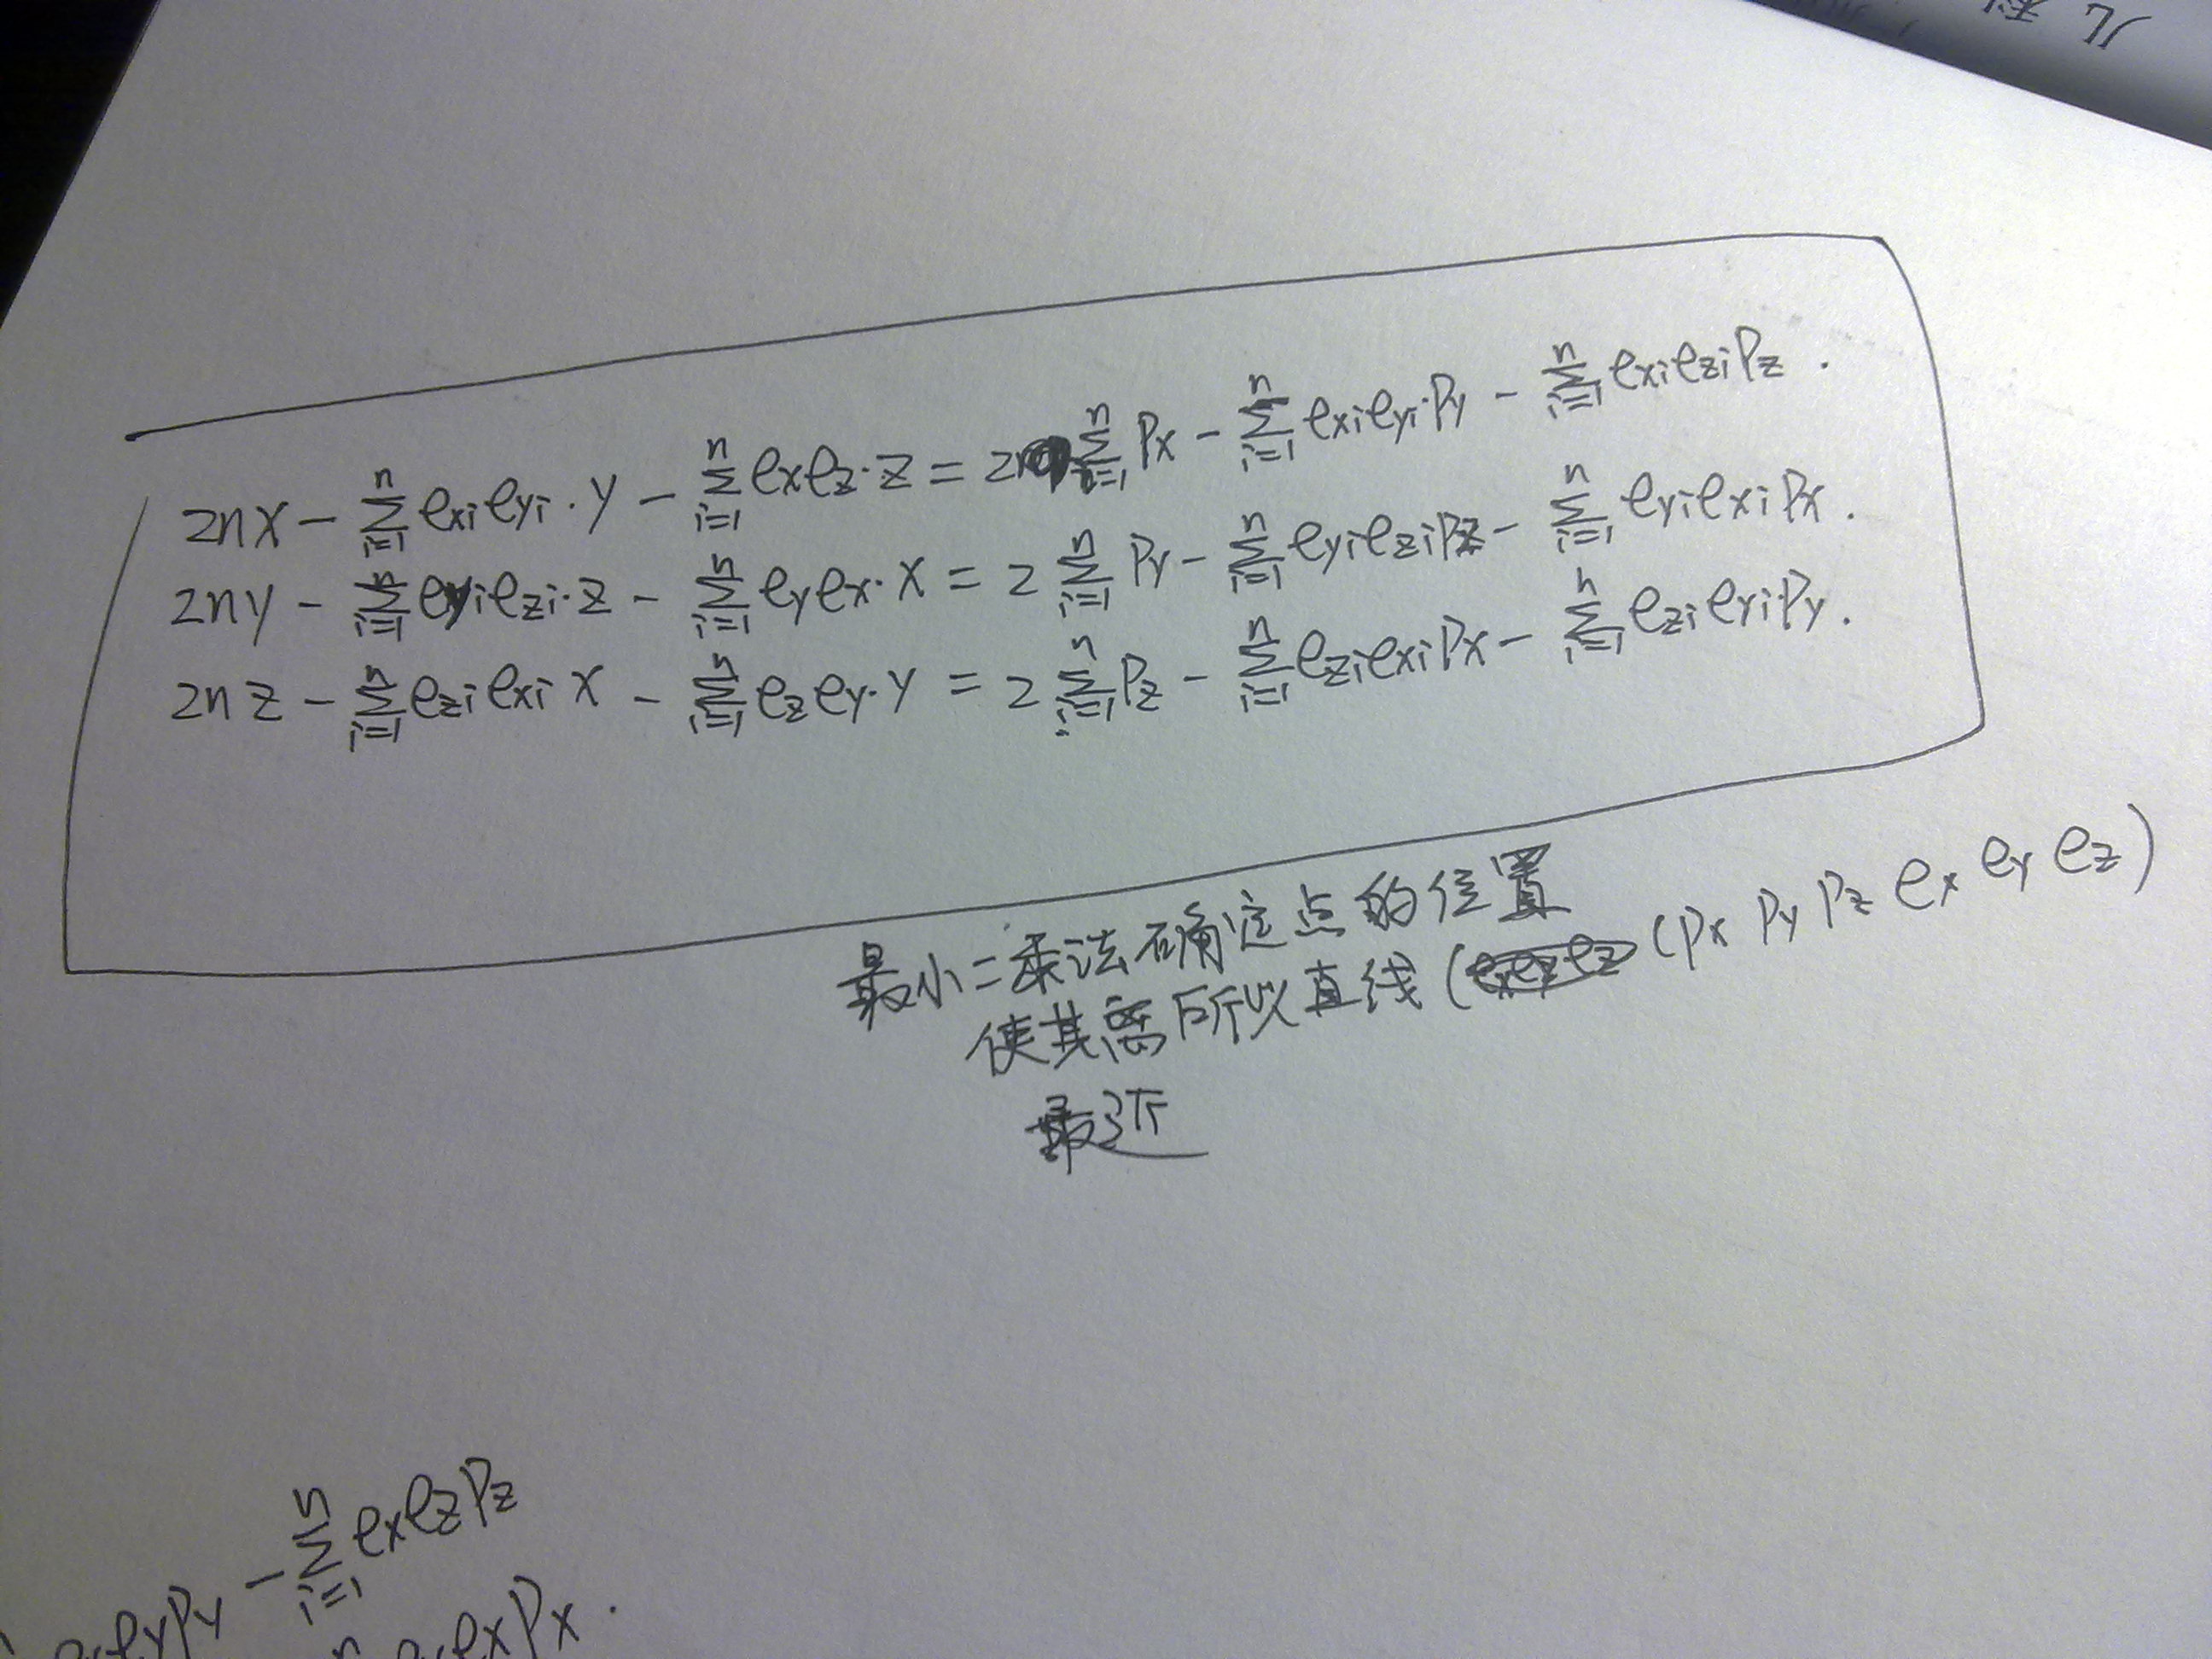 2nx - \sum_{i=1}^{n} e_{xi} e_{yi} · y - \sum_{i=1}^{n} e_x e_z · z = 2 \sum_{i=1}^{n} P_x - \sum_{i=1}^{n} e_{xi} e_{yi} · P_y - \sum_{i=1}^{n} e_{xi} e_{zi} P_z .
2ny - \sum_{i=1}^{n} e_{yi} e_{zi} · z - \sum_{i=1}^{n} e_y e_x · x = 2 \sum_{i=1}^{n} P_y - \sum_{i=1}^{n} e_{yi} e_{zi} P_z - \sum_{i=1}^{n} e_{yi} e_{xi} P_x .
2nz - \sum_{i=1}^{n} e_{zi} e_{xi} x - \sum_{i=1}^{n} e_z e_y · y = 2 \sum_{i=1}^{n} P_z - \sum_{i=1}^{n} e_{zi} e_{xi} P_x - \sum_{i=1}^{n} e_{zi} e_{yi} · P_y .
最小二乘法确定点的位置
使其离所以直线 ( (P_x P_y P_z e_x e_y e_z)
最近
- \sum_{i=1}^{n} e_x e_z P_z
e_y P_y
e_x P_x .